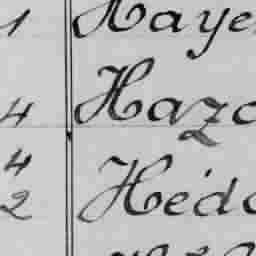 1 Haye
4 Hazo
4
2 Héde